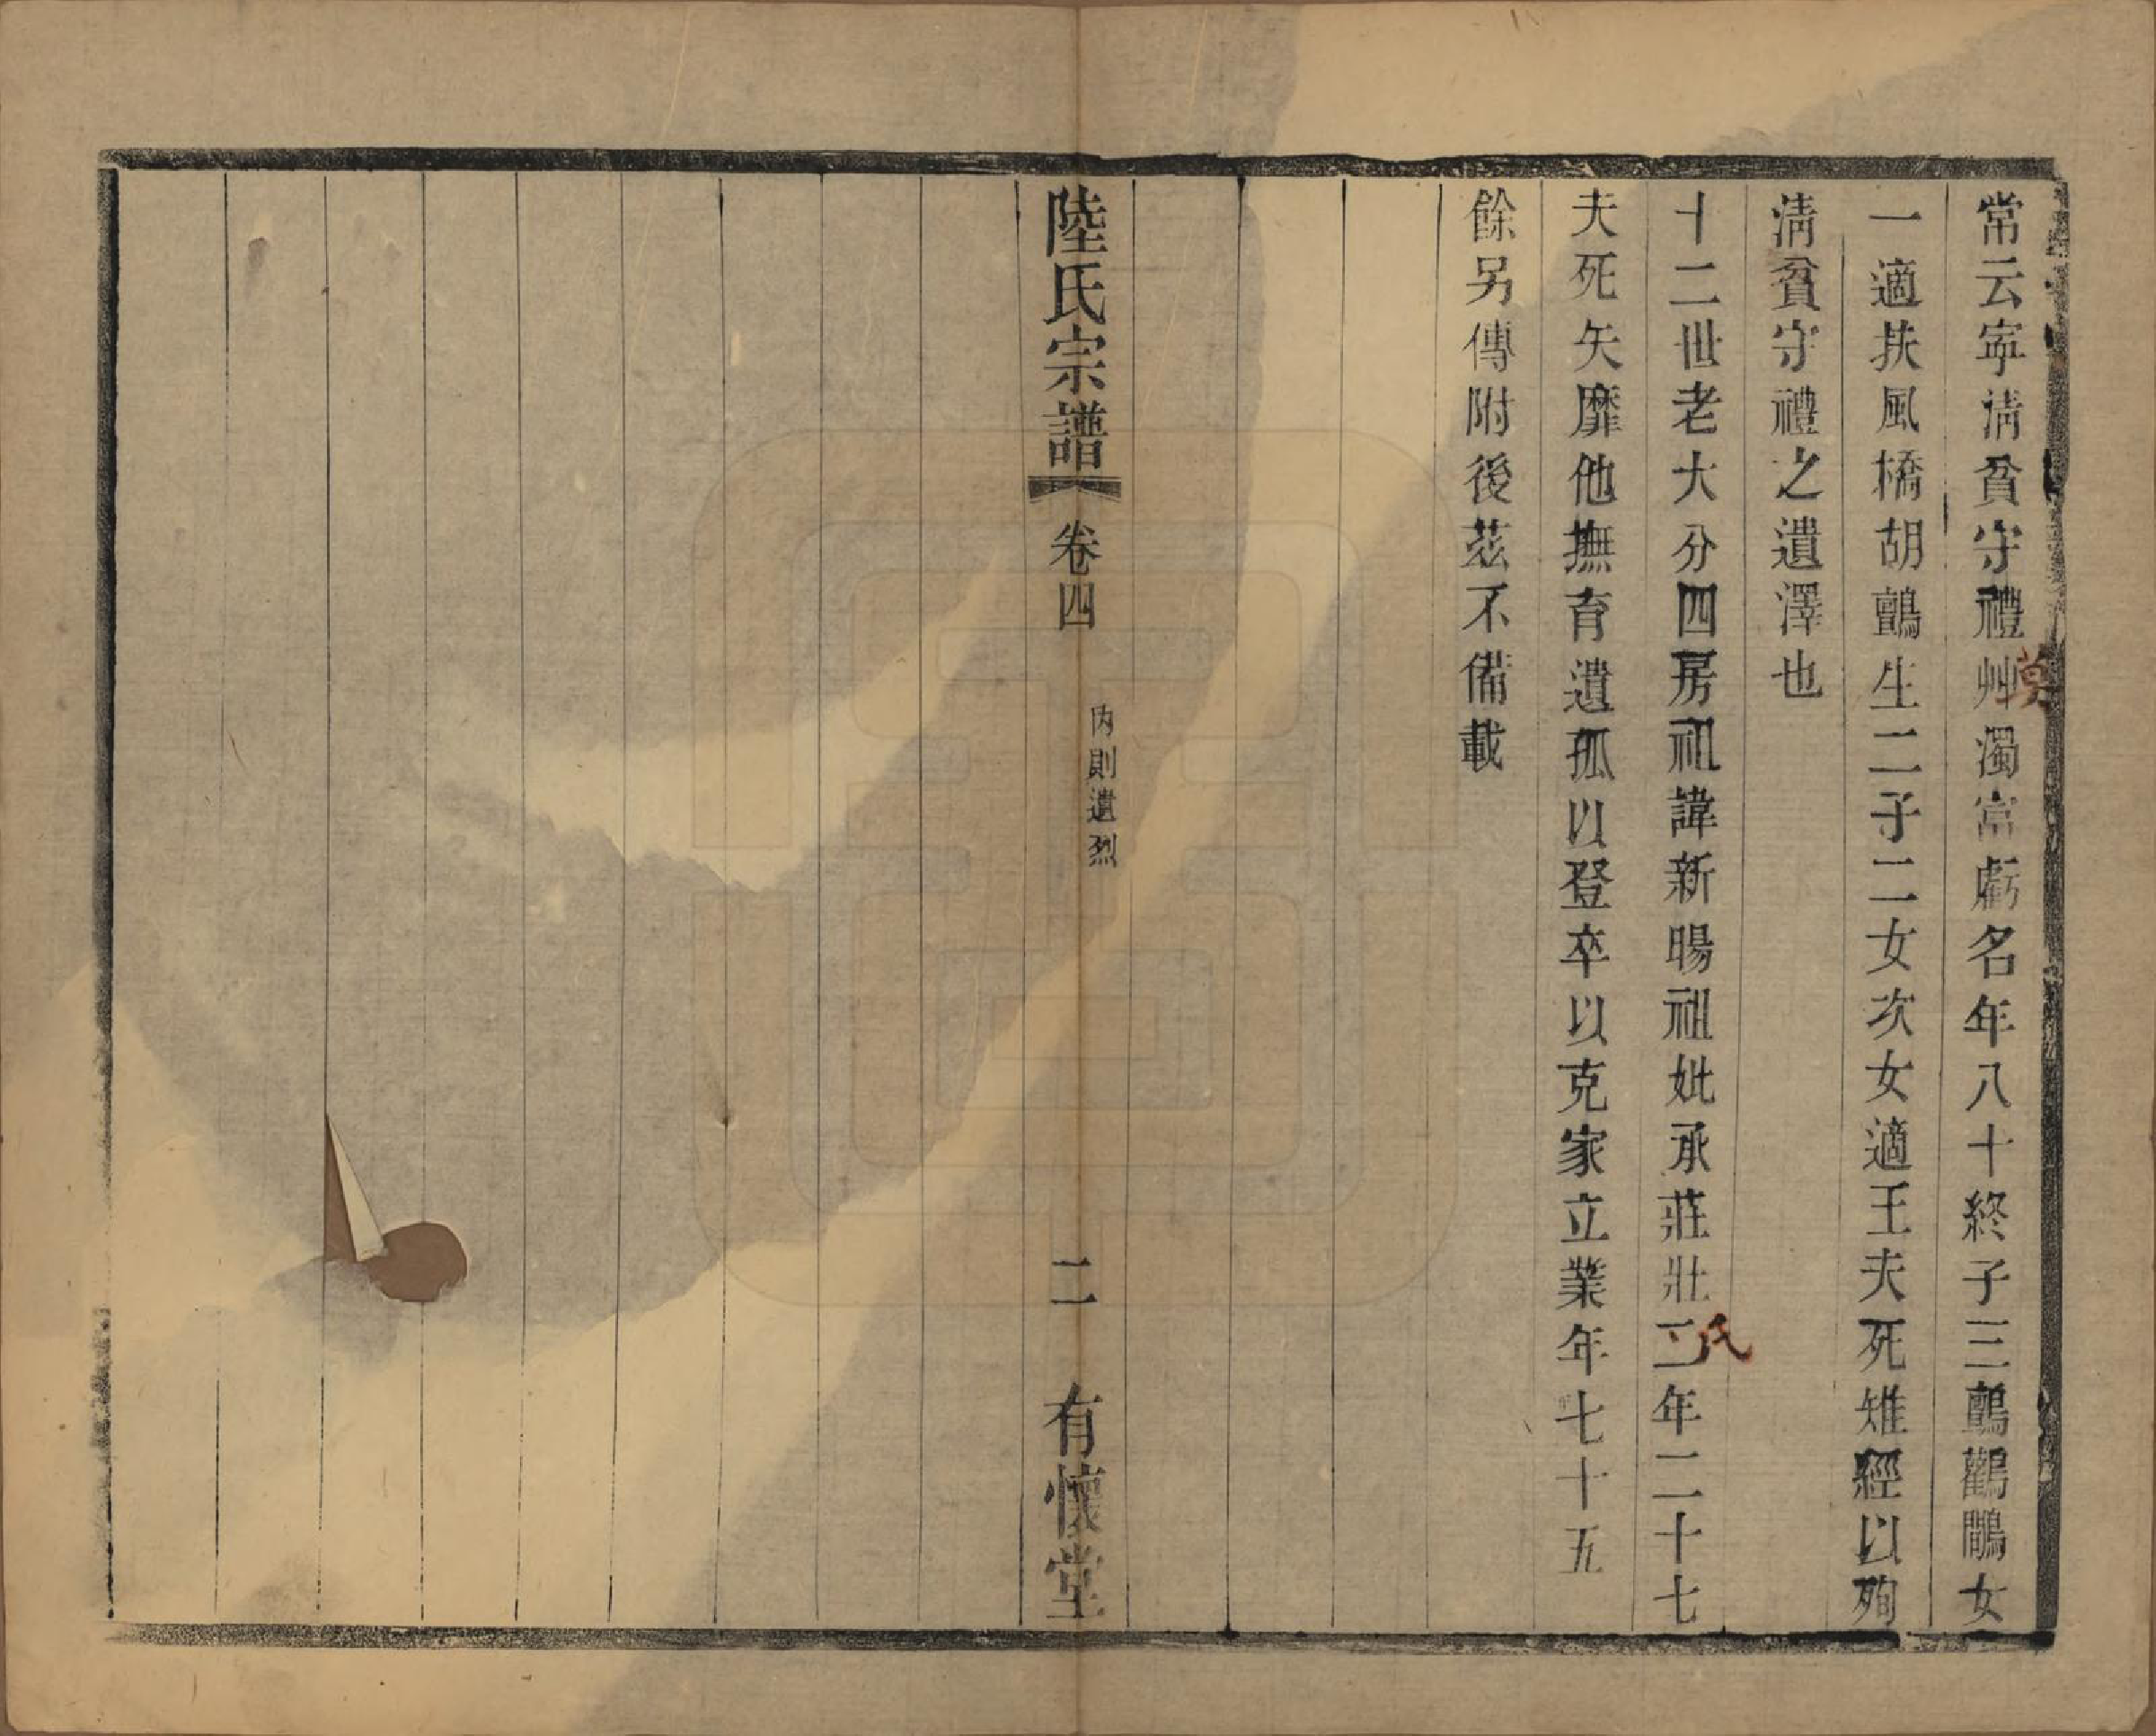 常云寧淸貧守禮艸濁富虧名年八十終子三鸇鸛鷳女
莫
一適扶風橋胡鸇生二子二女次女適王夫死雉經以殉
淸貧守禮之遺澤也
十二世老大分四房祖諱新暘祖妣承莊壯二年二十七
氏
夫死矢靡他撫育遺孤以登卒以克家立業年七十五
餘另傳附後茲不備載
陸氏宗譜 卷四 內則遺烈 二 有懷堂